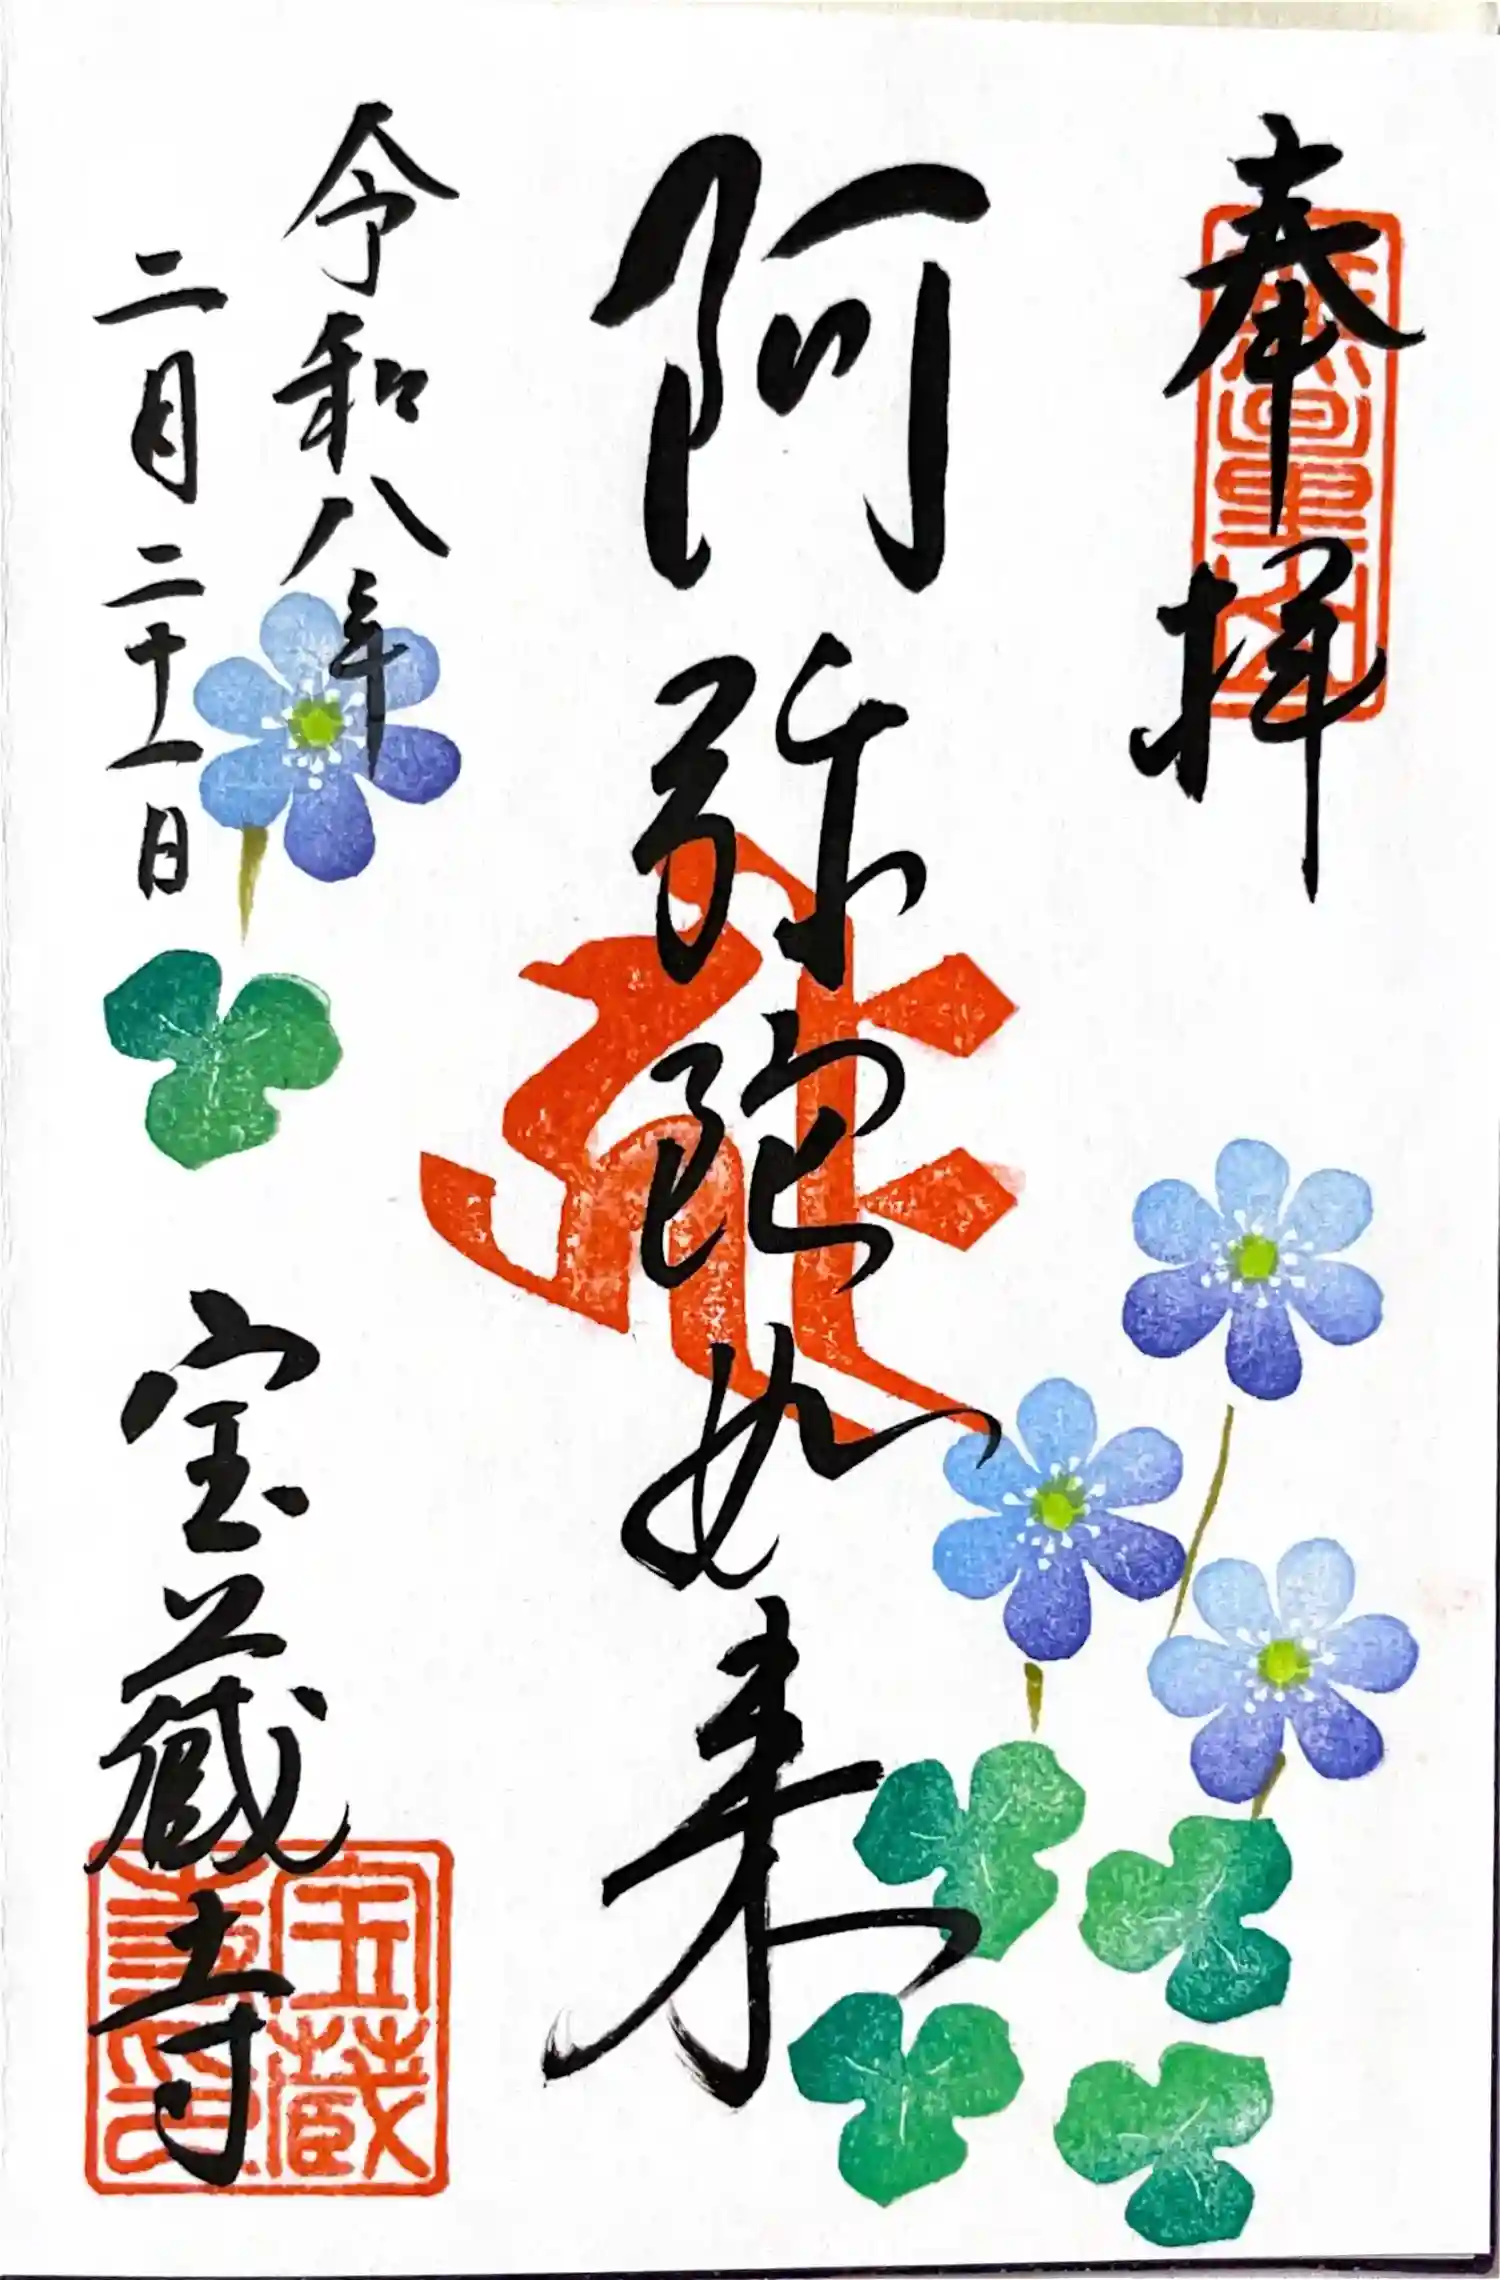 奉拝
無量山
阿弥陀如来
令和八年
二月二十一日
宝蔵寺
宝蔵
寺印